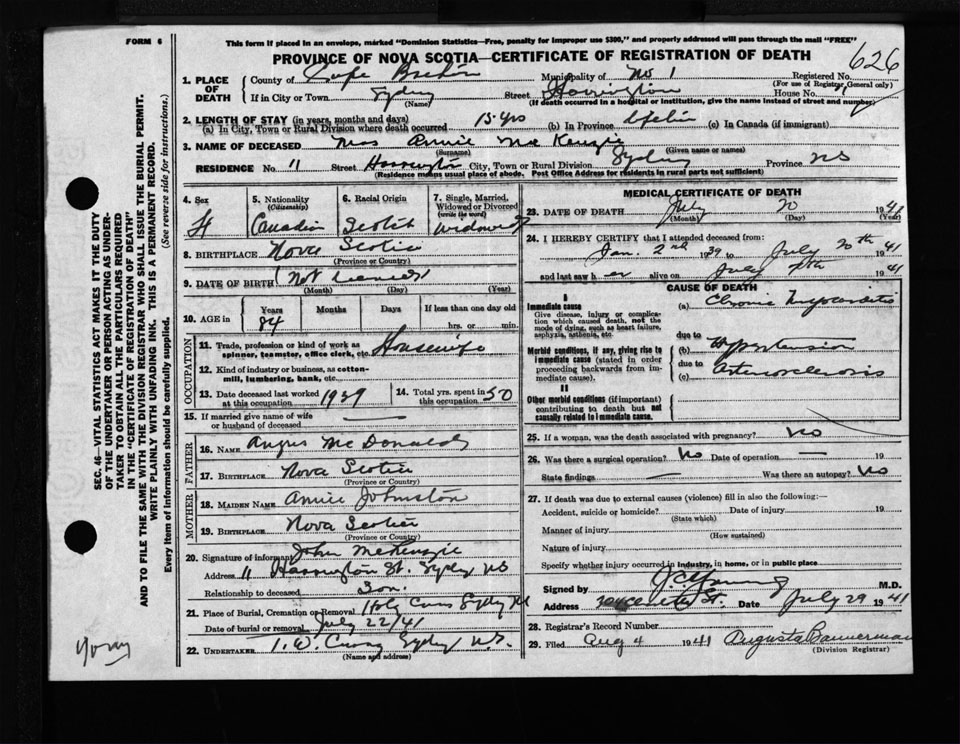 FORM 6
This form if placed in an envelope, marked "Dominion Statistics—Free, penalty for improper use $300," and properly addressed will pass through the mail "FREE"
PROVINCE OF NOVA SCOTIA—CERTIFICATE OF REGISTRATION OF DEATH
626
1. PLACE OF DEATH County of Cape Breton Municipality of No 1 Registered No.
(For use of Registrar General only)
If in City or Town Sydney Street Harrington House No.
(Name) (If death occurred in a hospital or institution, give the name instead of street and number)
2. LENGTH OF STAY (in years, months and days)
(a) In City, Town or Rural Division where death occurred 15 yrs (b) In Province Lifetime (c) In Canada (if immigrant)
3. NAME OF DECEASED Mrs Annie McKenzie
(Surname) (Given name or names)
RESIDENCE No. 11 Street Harrington City, Town or Rural Division Sydney Province NS
(Residence means usual place of abode. Post Office Address for residents in rural parts not sufficient)
4. Sex F
5. Nationality (Citizenship) Canadian
6. Racial Origin Scotch
7. Single, Married, Widowed or Divorced (write the word) Widowed
8. BIRTHPLACE Nova Scotia
(Province or Country)
9. DATE OF BIRTH (Not learned)
(Month) (Day) (Year)
10. AGE in Years 84 Months Days If less than one day old
hrs. or min.
OCCUPATION
11. Trade, profession or kind of work as spinner, teamster, office clerk, etc. Housewife
12. Kind of industry or business, as cotton-mill, lumbering, bank, etc.
13. Date deceased last worked at this occupation 1939
14. Total yrs. spent in this occupation 50
15. If married give name of wife or husband of deceased —
FATHER
16. NAME Angus McDonald
17. BIRTHPLACE Nova Scotia
(Province or Country)
MOTHER
18. MAIDEN NAME Annie Johnston
19. BIRTHPLACE Nova Scotia
(Province or Country)
20. Signature of informant John McKenzie
Address 11 Harrington St. Sydney NS
Relationship to deceased Son
21. Place of Burial, Cremation or Removal Holy Cross Sydney NS
Date of burial or removal July 22/41
22. UNDERTAKER T. W. Curry Sydney N.S.
(Name and address)
MEDICAL CERTIFICATE OF DEATH
23. DATE OF DEATH July 20 1941
(Month) (Day) (Year)
24. I HEREBY CERTIFY that I attended deceased from:
Jan. 2nd 1939 to July 20th 1941
and last saw h er alive on July 1941
CAUSE OF DEATH
I
Immediate cause
Give disease, injury or complication which caused death, not the mode of dying, such as heart failure, asphyxia, asthenia, etc.
(a) Chronic Myocarditis
due to
Morbid conditions, if any, giving rise to immediate cause (stated in order proceeding backwards from immediate cause).
(b) Hypertension
due to
(c) Arteriosclerosis
II
Other morbid conditions (if important) contributing to death but not causally related to immediate cause.
25. If a woman, was the death associated with pregnancy? No
26. Was there a surgical operation? No Date of operation —
State findings Was there an autopsy? No
27. If death was due to external causes (violence) fill in also the following:—
Accident, suicide or homicide? Date of injury 19
(State which)
Manner of injury
(How sustained)
Nature of injury
Specify whether injury occurred in industry, in home, or in public place
Signed by M.D.
Address St. Date July 29 1941
28. Registrar's Record Number
29. Filed Aug 4 1941 Augusta Bannerman
(Division Registrar)
SEC. 46—VITAL STATISTICS ACT MAKES IT THE DUTY
OF THE UNDERTAKER OR PERSON ACTING AS UNDER-
TAKER TO OBTAIN ALL THE PARTICULARS REQUIRED
IN THE "CERTIFICATE OF REGISTRATION OF DEATH"
AND TO FILE THE SAME WITH THE DIVISION REGISTRAR WHO SHALL ISSUE THE BURIAL PERMIT.
WRITE PLAINLY WITH UNFADING INK. THIS IS A PERMANENT RECORD.
Every item of information should be carefully supplied. (See reverse side for instructions.)